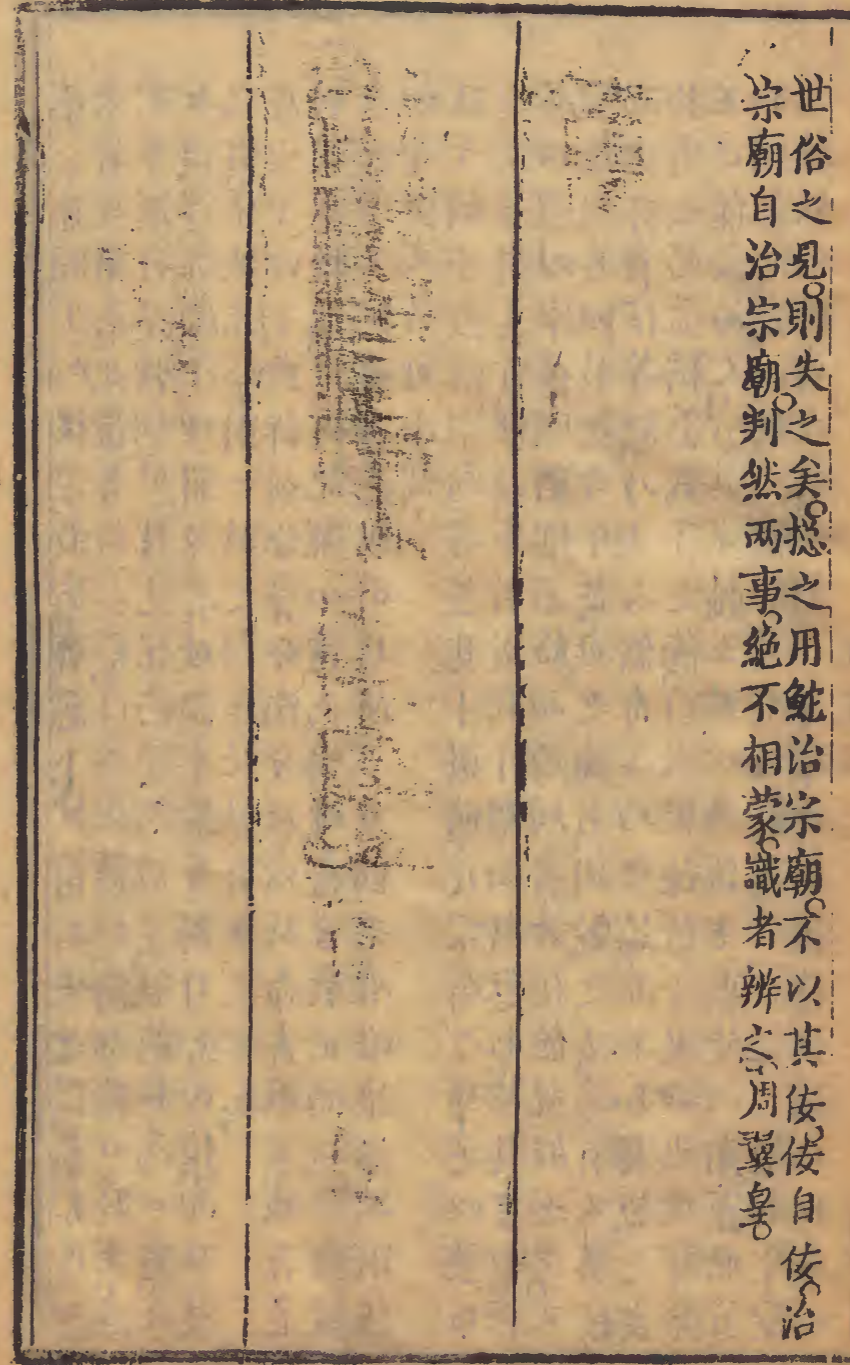 世俗之見。則失之矣。揔之用鮀治宗廟。不以其佞。佞自佞。治
宗廟自治宗廟。判然两事。絶不相蒙。識者辨之。周翼皇。